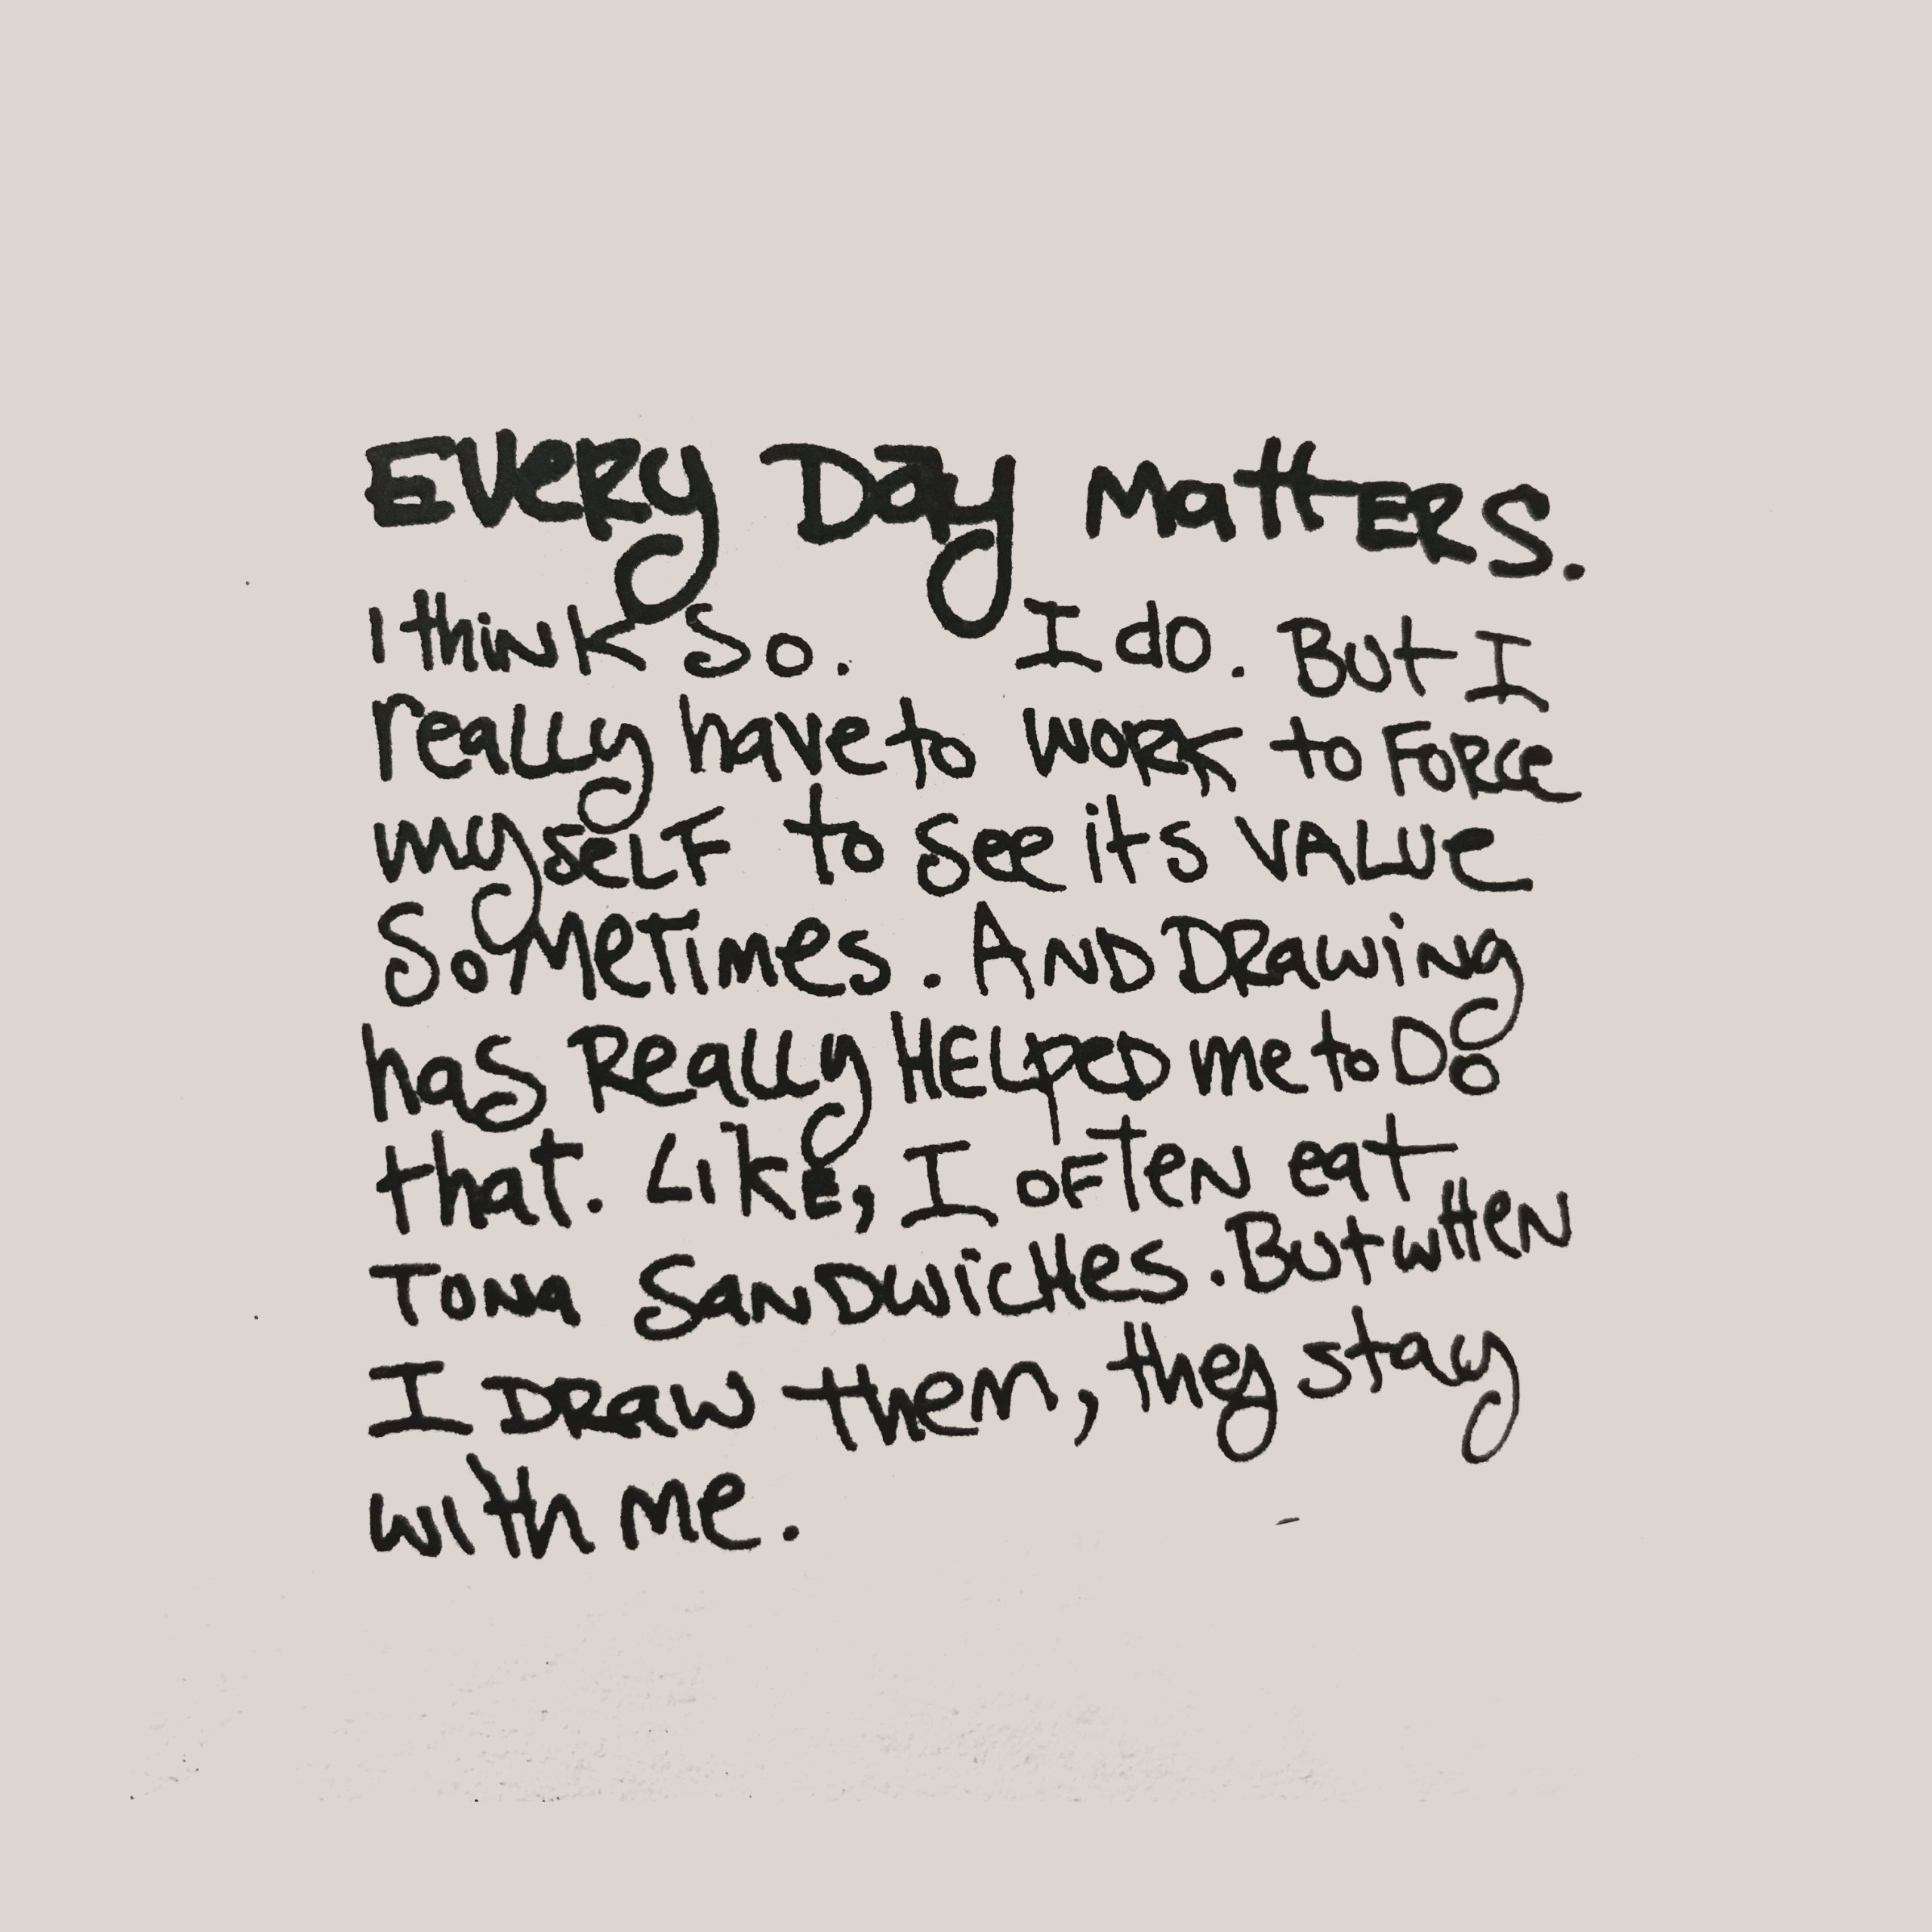 EVeRy Day MattERS.
I thiNK So. I do. But I
really have to WORK to FORce
myseLF to see its VALUe
SoMeTimes. AND DRawiNg
has Really HELpeD me to Do
that. LikE, I OFTeN eat
TUNa SaNDwicHes. But wHeN
I DRaw them, they stay
with Me.